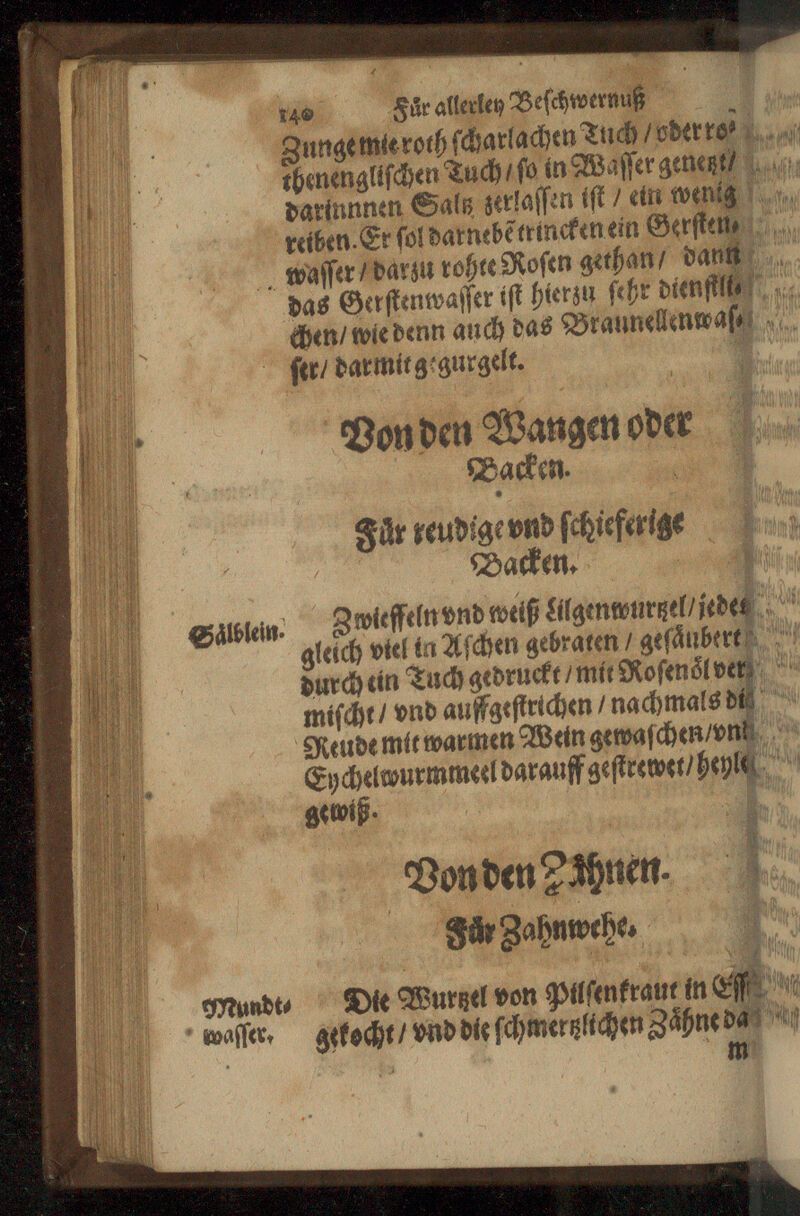 140 Fůr allerley Beſchwernuß
Zunge mit roth ſcharlachen Tuch / oder ro⸗
thenengliſchen Tuch / ſo in Waſſer genetzt /
darinnnen Saltz zerlaſſen iſt / ein wenig
reiben. Er ſol darnebẽ trincken ein Gerſten⸗
waſſer / darzu rohte Roſen gethan / dann
das Gerſtenwaſſer iſt hierzu ſehr dienſtli⸗
chen / wie denn auch das Braunellenwaſ⸗
ſer / darmit gegurgelt.
Von den Wangen oder
Backen.
Fůr reudige vnd ſchieferige
Backen.
Sålblein. Zwieffeln vnd weiß Lilgenwurtzel / jedes
gleich viel in Aſchen gebraten / geſåubert
durch ein Tuch gedruckt / mit Roſenől ver
miſcht / vnd auffgeſtrichen / nachmals di
Reude mit warmen Wein gewaſchen / vn
Eychelwurmmeel darauff geſtrewet / heyle
gewiß.
Von den Zåhnen.
Fůr Zahnwehe.
Mundt⸗ Die Wurtzel von Pilſenkraut in Eſſ
waſſer. gekocht / vnd die ſchmertzlichen Zåhne da
m